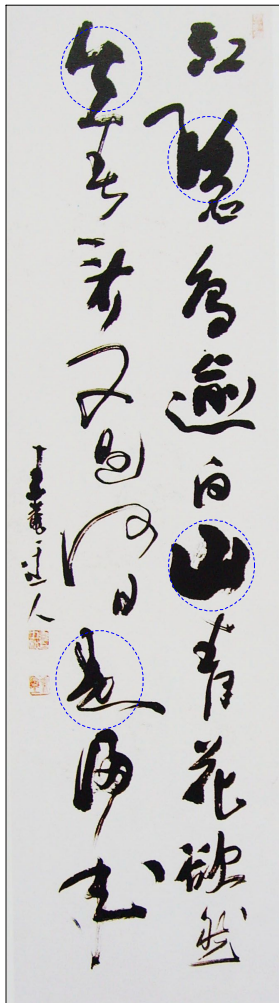 江碧鳥逾白山青花欲然
今春看又過何日是歸年
人